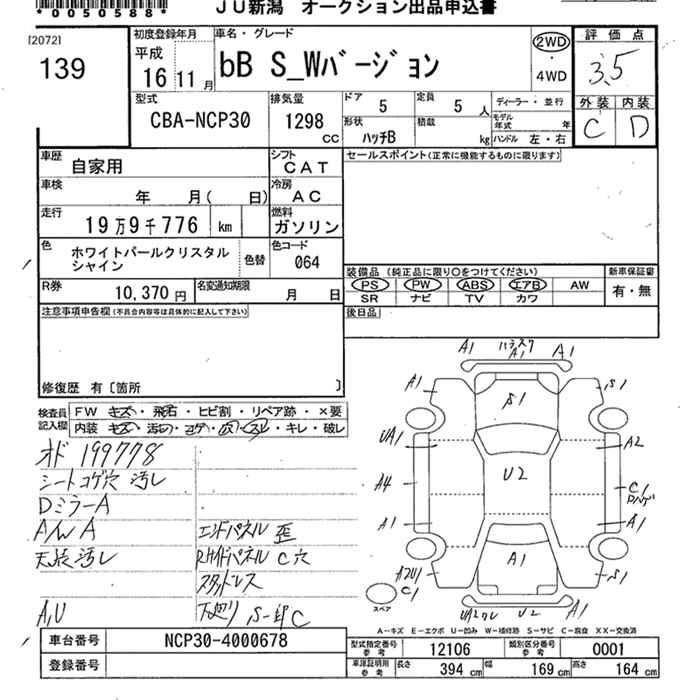 *0050588*
JU新潟 オークション出品申込書
[2072]
139
初度登録年月
平成
16 11月
車名・グレード
bB S_Wバージョン
2WD
・
4WD
評価点
3.5
外装 内装
C D
型式
CBA-NCP30
排気量
1298
cc
ドア 5
定員 5 人
ディーラー・並行
形状 ハッチB
積載 kg
モデル年式 年
ハンドル 左・右
車歴 自家用
シフト CAT
セールスポイント(正常に機能するものに限ります)
車検 年 月( 日)
冷房 AC
走行 19万9千776 km
燃料 ガソリン
色 ホワイトパールクリスタル
シャイン
色替
色コード 064
R券 10,370 円
名変通知期限 月 日
装備品 (純正品に限り〇をつけてください)
新車保証書
PS PW ABS エアB AW
有・無
SR ナビ TV カワ
後日品
注意事項申告欄(不具合内容等は具体的に記入して下さい)
修復歴 有〔箇所 〕
検査員
記入欄
FW キズ・飛石・ヒビ割・リペア跡・×要
内装 キズ・汚レ・コゲ・穴・スレ・キレ・破レ
オド 199778
シートコゲ穴 汚レ
DミラーA
A/W A
エンドパネル 歪
天張汚レ
RサイドパネルC穴
スタットレス
A,U
下廻り S-錆C
A1 A1 A1
A1 S1 S1
UA1 A2
U2
A4 C1
A1 A1
A1
C1 S1
スペア
U2 A1
A-キズ E-エクボ U-凹み W-補修跡 S-サビ C-腐食 XX-交換済
車台番号 NCP30-4000678
登録番号
型式指定番号
参考
12106
類別区分番号
参考
0001
車庫証明用
参考
長さ 394 cm 幅 169 cm 高さ 164 cm